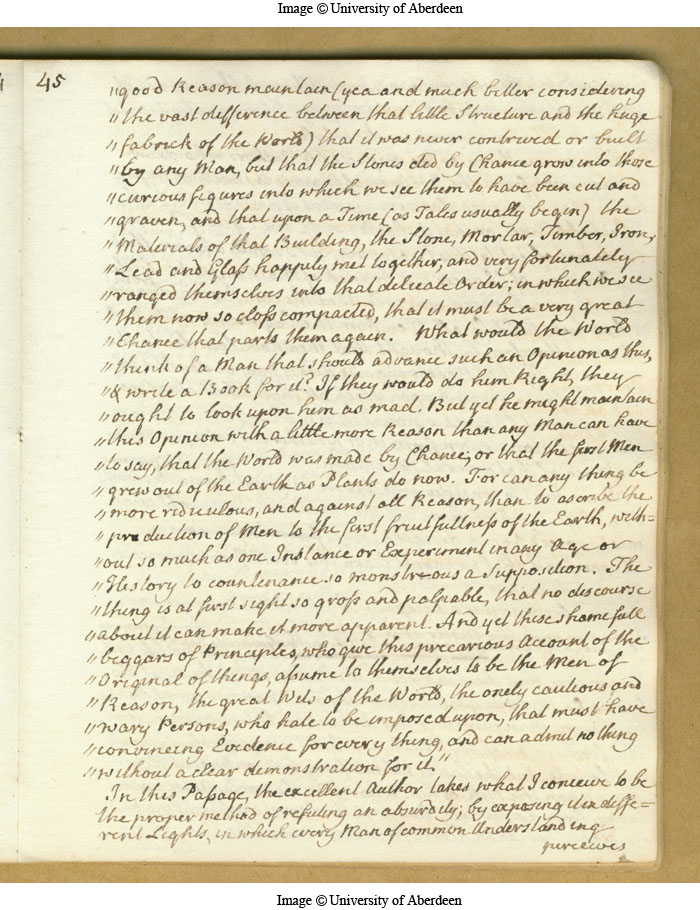 Image © University of Aberdeen
45
"good Reason maintain (yea and much better considering
"the vast difference between that little Structure and the huge
"fabrick of the World) that it was never contrived or built
"by any Man, but that the Stones did by Chance grow into those
"curious figures into which we see them to have been cut and
"graven, and that upon a Time (as Tales usually begin) the
"Materials of that Building, the Stone, Mortar, Timber, Iron,
"Lead and Glass happily met together, and very fortunately
"ranged themselves into that delicate Order; in which we see
"them now so closs compacted, that it must be a very great
"Chance that parts them again. What would the World
"think of a Man that should advance such an Opinion as this,
"& write a Book for it? If they would do him Right, they
"ought to look upon him as mad. But yet he might maintain
"this Opinion with a little more Reason than any Man can have
"to say, that the World was made by Chance; or that the first Men
"grew out of the Earth as Plants do now. For can any thing be
"more ridiculous, and against all Reason, than to ascribe the
"production of Men to the first fruitfullness of the Earth, with=
"out so much as one Instance or Experiment in any Age or
"History to countenance so monstrous a Supposition. The
"thing is at first sight so gross and palpable, that no discourse
"about it can make it more apparent. And yet these shamefull
"beggars of Principles, who give this precarious Account of the
"Original of things, assume to themselves to be the Men of
"Reason, the great Wits of the World, the onely cautious and
"wary Persons, who hate to be imposed upon, that must have
"convincing Evidence for every thing, and can admit nothing
"without a clear demonstration for it."
In this Passage, the excellent Author takes what I conceive to be
the proper method of refuting an absurdity; by exposing it in diffe=
rent Lights, in which every Man of common Understanding
perceives
Image © University of Aberdeen